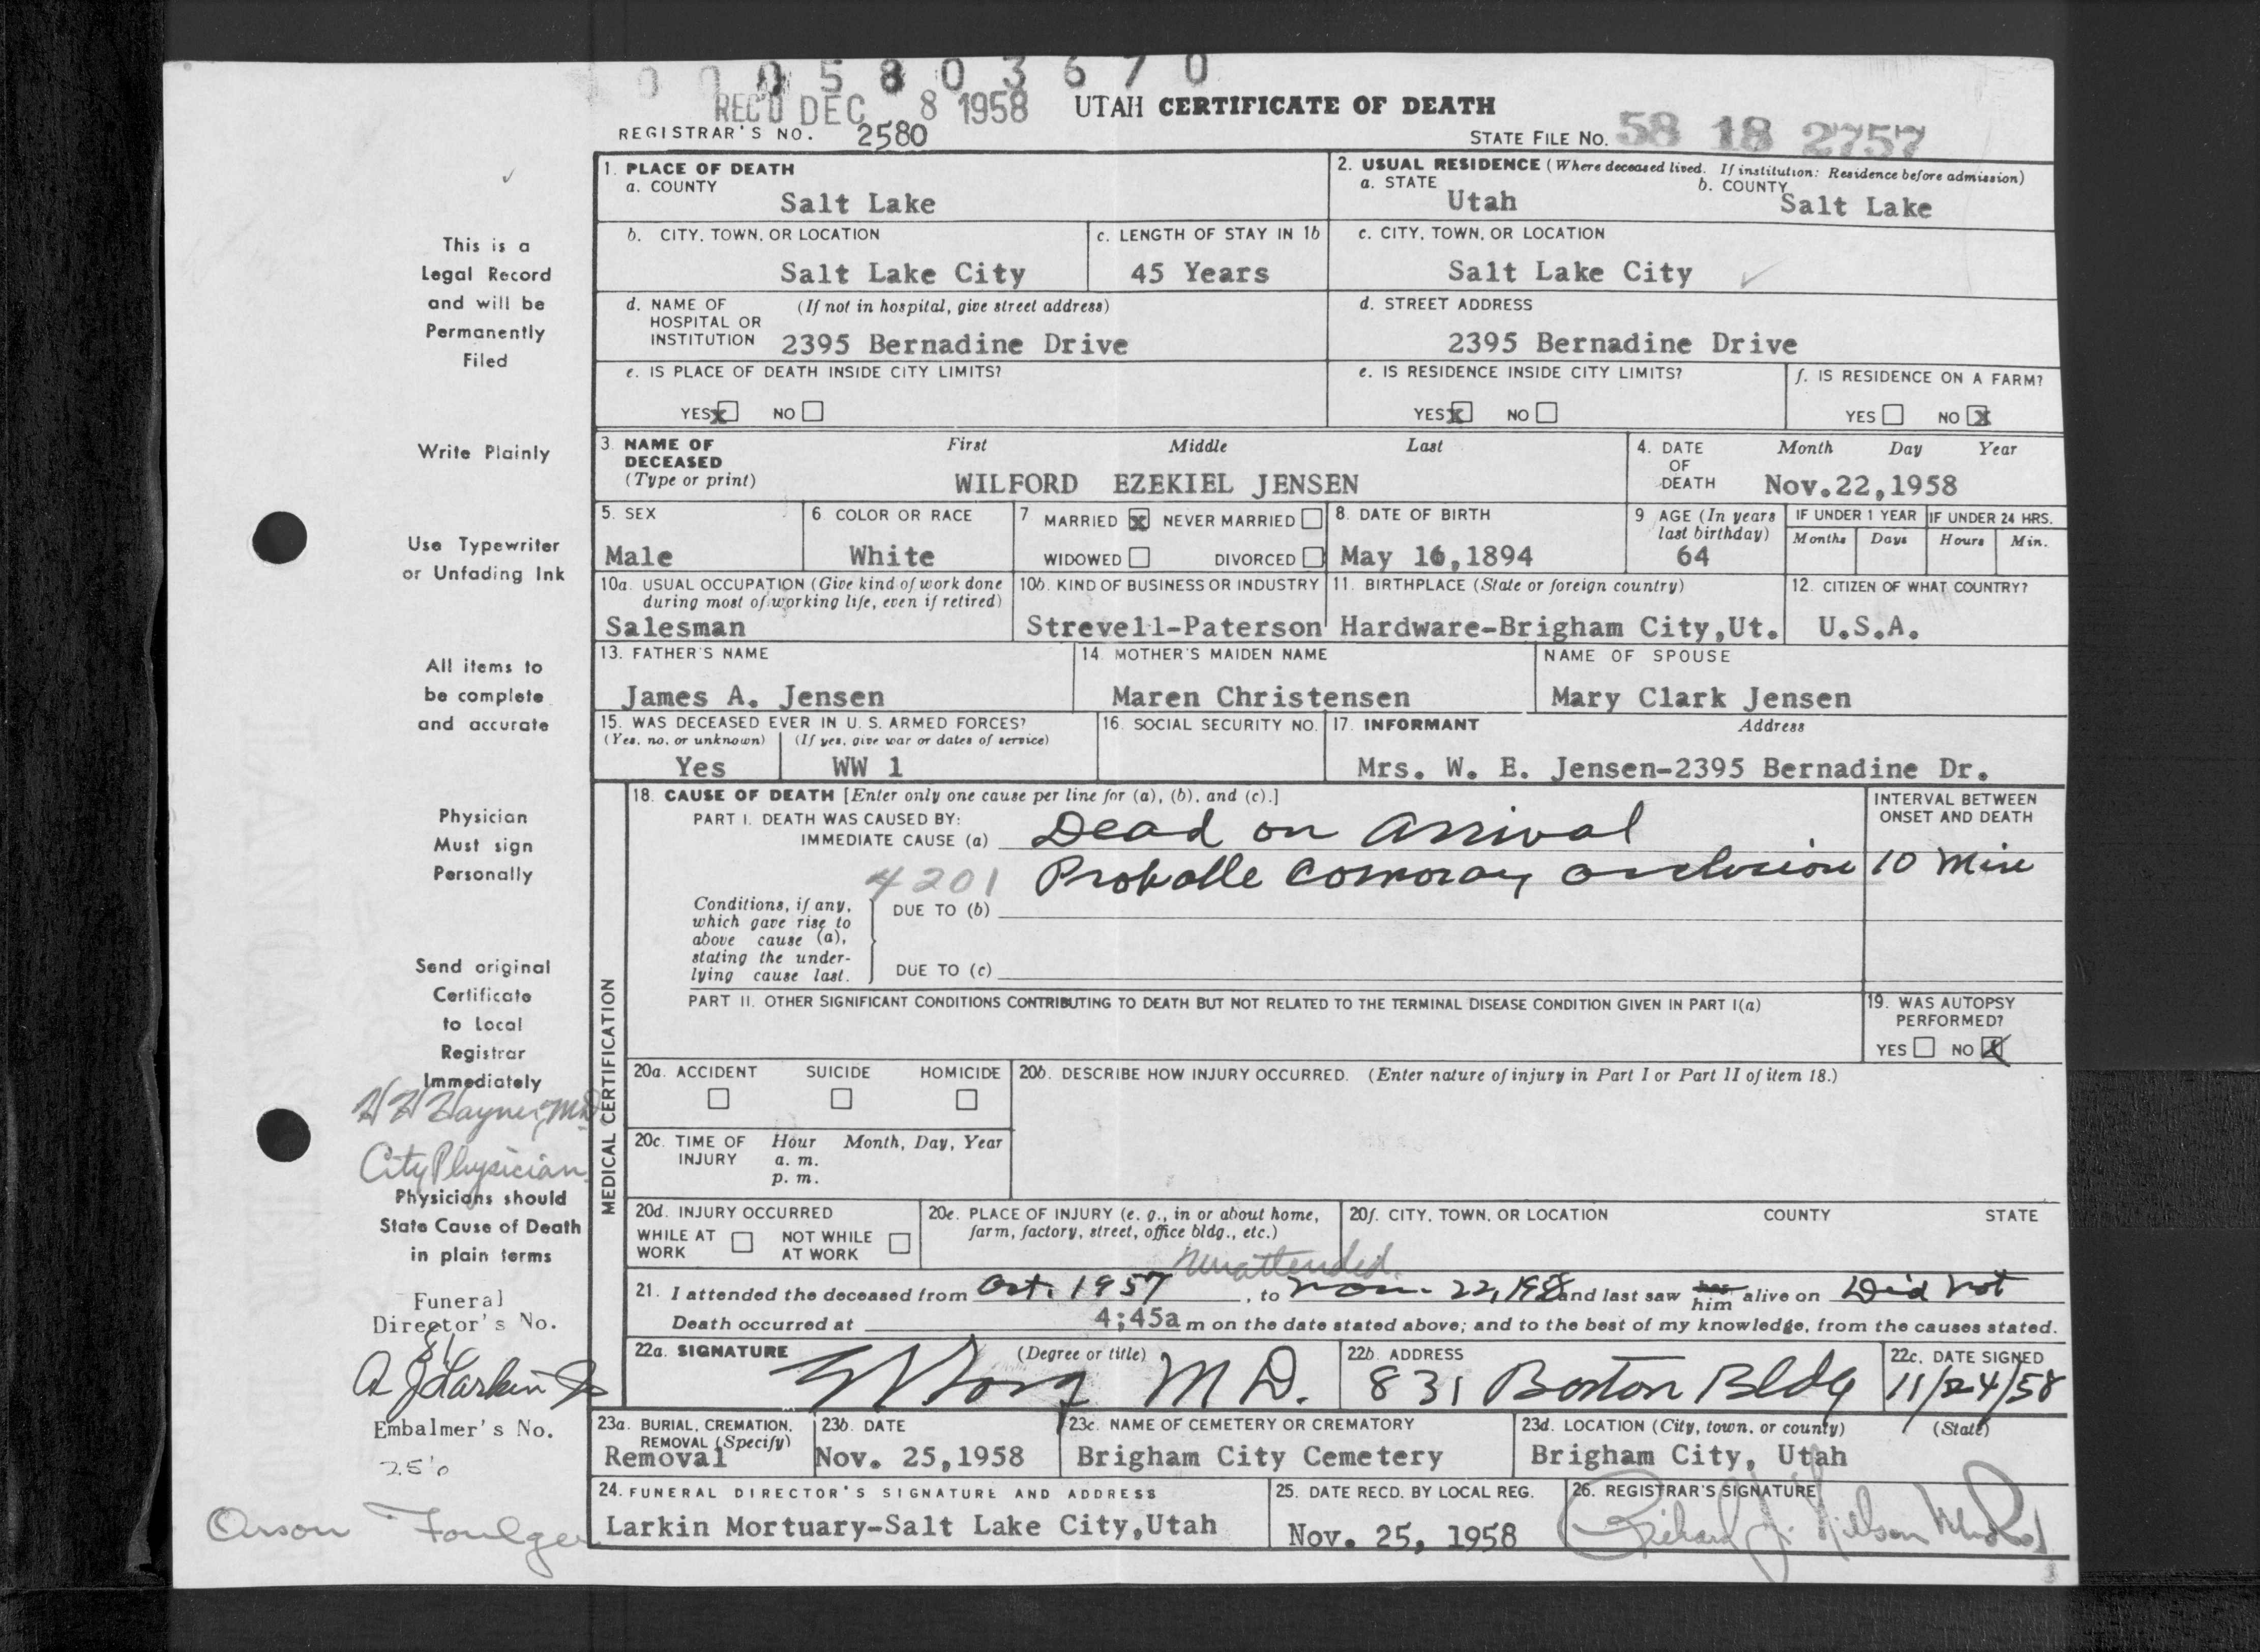 0 0 0 5 8 0 3 6 7 0
REC'D DEC 8 1958 UTAH CERTIFICATE OF DEATH
REGISTRAR'S NO. 2580 STATE FILE NO. 58 18 2757
1. PLACE OF DEATH 2. USUAL RESIDENCE (Where deceased lived. If institution: Residence before admission)
a. COUNTY a. STATE b. COUNTY
Salt Lake Utah Salt Lake
b. CITY, TOWN, OR LOCATION c. LENGTH OF STAY IN 1b c. CITY, TOWN, OR LOCATION
Salt Lake City 45 Years Salt Lake City
d. NAME OF HOSPITAL OR INSTITUTION (If not in hospital, give street address) d. STREET ADDRESS
2395 Bernadine Drive 2395 Bernadine Drive
e. IS PLACE OF DEATH INSIDE CITY LIMITS? e. IS RESIDENCE INSIDE CITY LIMITS? f. IS RESIDENCE ON A FARM?
YES X NO YES X NO YES NO X
3. NAME OF DECEASED (Type or print) First Middle Last 4. DATE OF DEATH Month Day Year
WILFORD EZEKIEL JENSEN Nov.22,1958
5. SEX 6 COLOR OR RACE 7 MARRIED X NEVER MARRIED 8. DATE OF BIRTH 9 AGE (In years last birthday) IF UNDER 1 YEAR IF UNDER 24 HRS.
WIDOWED DIVORCED Months Days Hours Min.
Male White May 16,1894 64
10a. USUAL OCCUPATION (Give kind of work done during most of working life, even if retired) 10b. KIND OF BUSINESS OR INDUSTRY 11. BIRTHPLACE (State or foreign country) 12. CITIZEN OF WHAT COUNTRY?
Salesman Strevell-Paterson Hardware-Brigham City,Ut. U.S.A.
13. FATHER'S NAME 14. MOTHER'S MAIDEN NAME NAME OF SPOUSE
James A. Jensen Maren Christensen Mary Clark Jensen
15. WAS DECEASED EVER IN U. S. ARMED FORCES? 16. SOCIAL SECURITY NO. 17. INFORMANT Address
(Yes, no, or unknown) (If yes, give war or dates of service)
Yes WW 1 Mrs. W. E. Jensen-2395 Bernadine Dr.
18. CAUSE OF DEATH [Enter only one cause per line for (a), (b), and (c).] INTERVAL BETWEEN ONSET AND DEATH
PART I. DEATH WAS CAUSED BY:
IMMEDIATE CAUSE (a) Dead on arrival
4201 Probable coronary occlusion 10 Min
Conditions, if any, which gave rise to above cause (a), stating the underlying cause last.
DUE TO (b)
DUE TO (c)
PART II. OTHER SIGNIFICANT CONDITIONS CONTRIBUTING TO DEATH BUT NOT RELATED TO THE TERMINAL DISEASE CONDITION GIVEN IN PART I(a) 19. WAS AUTOPSY PERFORMED?
YES NO X
MEDICAL CERTIFICATION
20a. ACCIDENT SUICIDE HOMICIDE 20b. DESCRIBE HOW INJURY OCCURRED. (Enter nature of injury in Part I or Part II of item 18.)
20c. TIME OF INJURY Hour Month, Day, Year
a. m.
p. m.
20d. INJURY OCCURRED 20e. PLACE OF INJURY (e. g., in or about home, farm, factory, street, office bldg., etc.) 20f. CITY, TOWN, OR LOCATION COUNTY STATE
WHILE AT WORK NOT WHILE AT WORK
Unattended.
21. I attended the deceased from Oct. 1957, to Nov. 22, 1958 and last saw her him alive on Did not
Death occurred at 4;45a m on the date stated above; and to the best of my knowledge, from the causes stated.
22a. SIGNATURE (Degree or title) 22b. ADDRESS 22c. DATE SIGNED
M D. 831 Boston Bldg 11/24/58
23a. BURIAL, CREMATION, REMOVAL (Specify) 23b. DATE 23c. NAME OF CEMETERY OR CREMATORY 23d. LOCATION (City, town, or county) (State)
Removal Nov. 25,1958 Brigham City Cemetery Brigham City, Utah
24. FUNERAL DIRECTOR'S SIGNATURE AND ADDRESS 25. DATE RECD. BY LOCAL REG. 26. REGISTRAR'S SIGNATURE
Larkin Mortuary-Salt Lake City,Utah Nov. 25, 1958 Richard J. Nilson
This is a
Legal Record
and will be
Permanently
Filed
Write Plainly
Use Typewriter
or Unfading Ink
All items to
be complete
and accurate
Physician
Must sign
Personally
Send original
Certificate
to Local
Registrar
Immediately
MD
City Physician
Physicians should
State Cause of Death
in plain terms
Funeral
Director's No.
81
A J Larkin Jr
Embalmer's No.
256
Orson Foulger